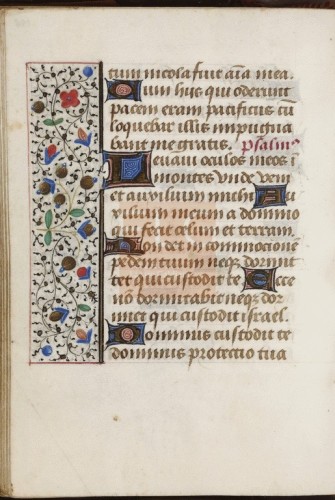 tum incola fuit aīa mea.
Cum hiis qui oderunt
pacem eram pacificus cū
loquebar illis impugna
bant me gratis. psalmus
Levavi oculos meos ī
montes unde veni
et auxilium michi Au
xilium meum a domino
qui fecit celum et terram.
Non det in commocionem
pedem tuum neqʒ dormit
tet qui custodit te Ecce
nō dormitabit neqʒ dor
miet qui custodit israel.
Dominus custodit te
dominus protectio tua